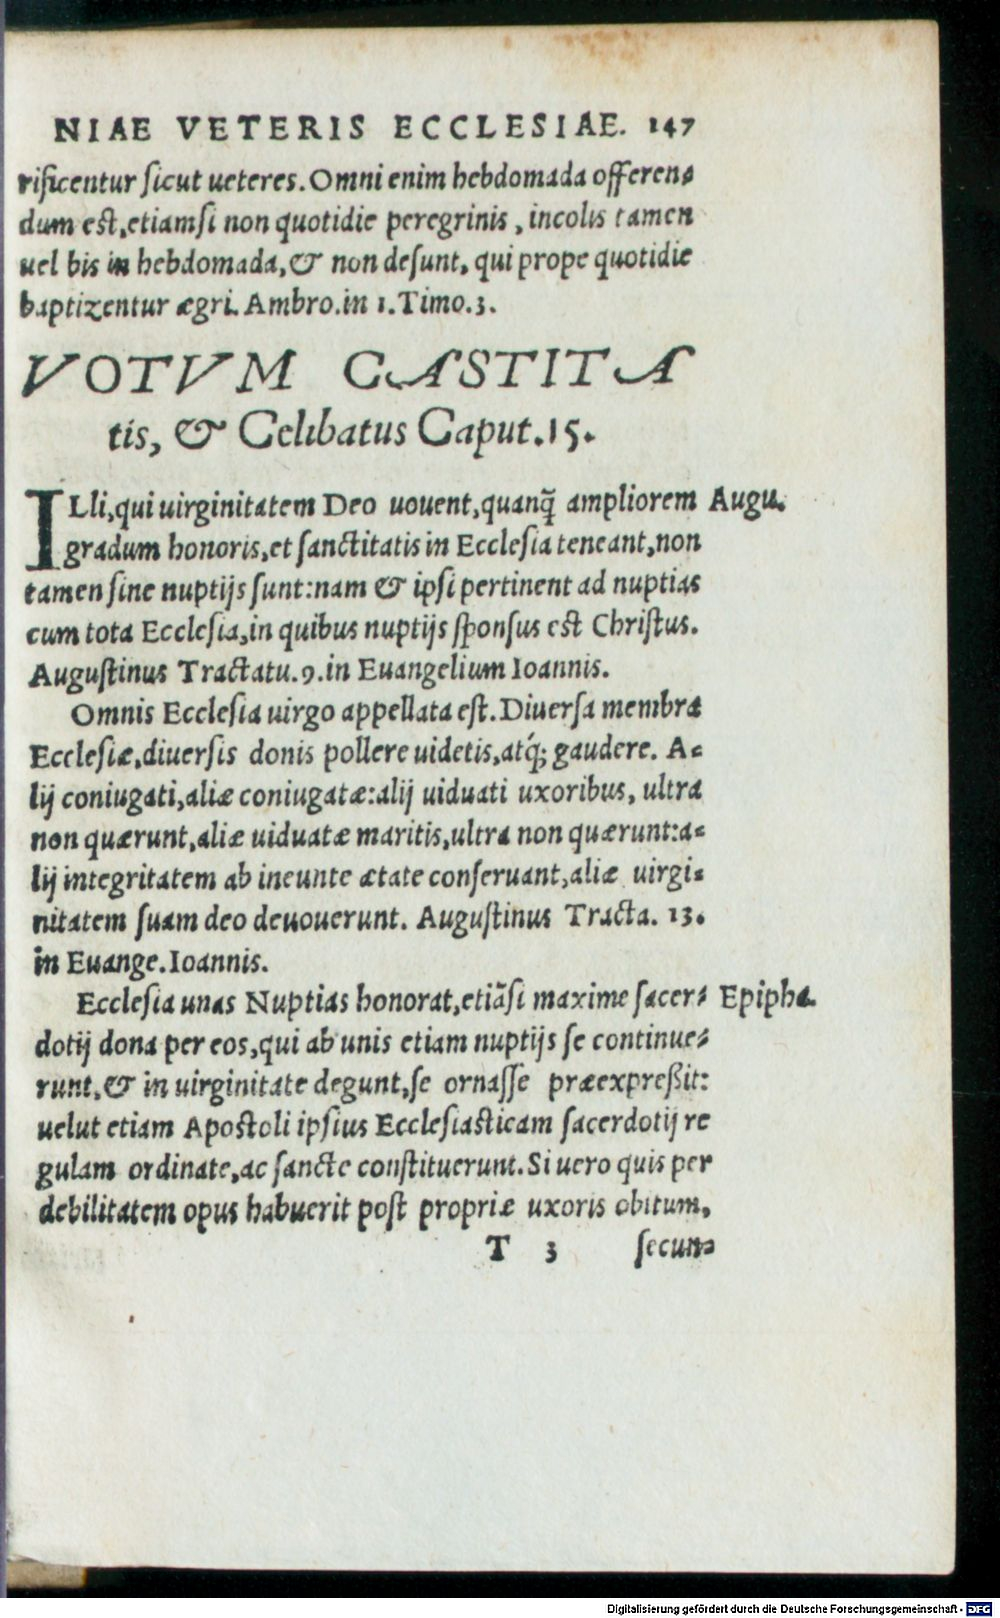 NIAE VETERIS ECCLESIAE. 147
rificentur ſicut ueteres. Omni enim hebdomada offeren⸗
dum eſt, etiamſi non quotidie peregrinis, incolis tamen
uel bis in hebdomada, & non deſunt, qui prope quotidie
baptizentur ægri. Ambro. in 1. Timo. 3.
VOTVM CASTITA
tis, & Celibatus Caput. 15.
ILli, qui uirginitatem Deo uouent, quanq̃ ampliorem Augu.
gradum honoris, et ſanctitatis in Eccleſia teneant, non
tamen ſine nuptijs ſunt: nam & ipſi pertinent ad nuptias
cum tota Eccleſia, in quibus nuptijs ſponſus eſt Chriſtus.
Auguſtinus Tractatu. 9. in Euangelium Ioannis.
Omnis Eccleſia uirgo appellata eſt. Diuerſa membra
Eccleſiæ, diuerſis donis pollere uidetis, atq́; gaudere. A⸗
lij coniugati, aliæ coniugatæ: alij uiduati uxoribus, ultra
non quærunt, aliæ uiduatæ maritis, ultra non quærunt: a⸗
lij integritatem ab ineunte ætate conſeruant, aliæ uirgi⸗
nitatem ſuam deo deuouerunt. Auguſtinus Tracta. 13.
in Euange. Ioannis.
Eccleſia unas Nuptias honorat, etiãſi maxime ſacer⸗ Epipha.
dotij dona per eos, qui ab unis etiam nuptijs ſe continue⸗
runt, & in uirginitate degunt, ſe ornaſſe præexpreßit:
uelut etiam Apoſtoli ipſius Eccleſiaſticam ſacerdotij re
gulam ordinate, ac ſancte conſtituerunt. Si uero quis per
debilitatem opus habuerit poſt propriæ uxoris obitum,
T 3 ſecun⸗
Digitalisierung gefördert durch die Deutsche Forschungsgemeinschaft - DFG